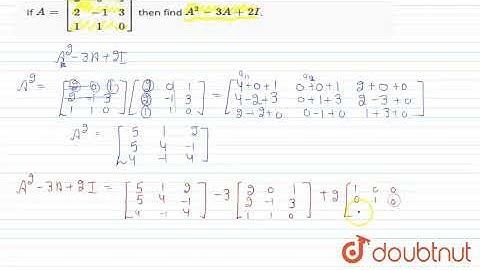 If A = [ 2 -1 3 then find A² - 3A + 2I.
1 1 0 ]
A² - 3A + 2I
A² = [ 2 0 1 ; 2 -1 3 ; 1 1 0 ] [ 2 0 1 ; 2 -1 3 ; 1 1 0 ] = [ 4+0+1 0+0+1 2+0+0 ; 4-2+3 0+1+3 2-3+0 ; 2+2+0 0-1+0 1+3+0 ]
A² = [ 5 1 2 ; 5 4 -1 ; 4 -1 4 ]
A² - 3A + 2I = [ 5 1 2 ; 5 4 -1 ; 4 -1 4 ] - 3 [ 2 0 1 ; 2 -1 3 ; 1 1 0 ] + 2 [ 1 0 0 ; 0 1 0
doubtnut